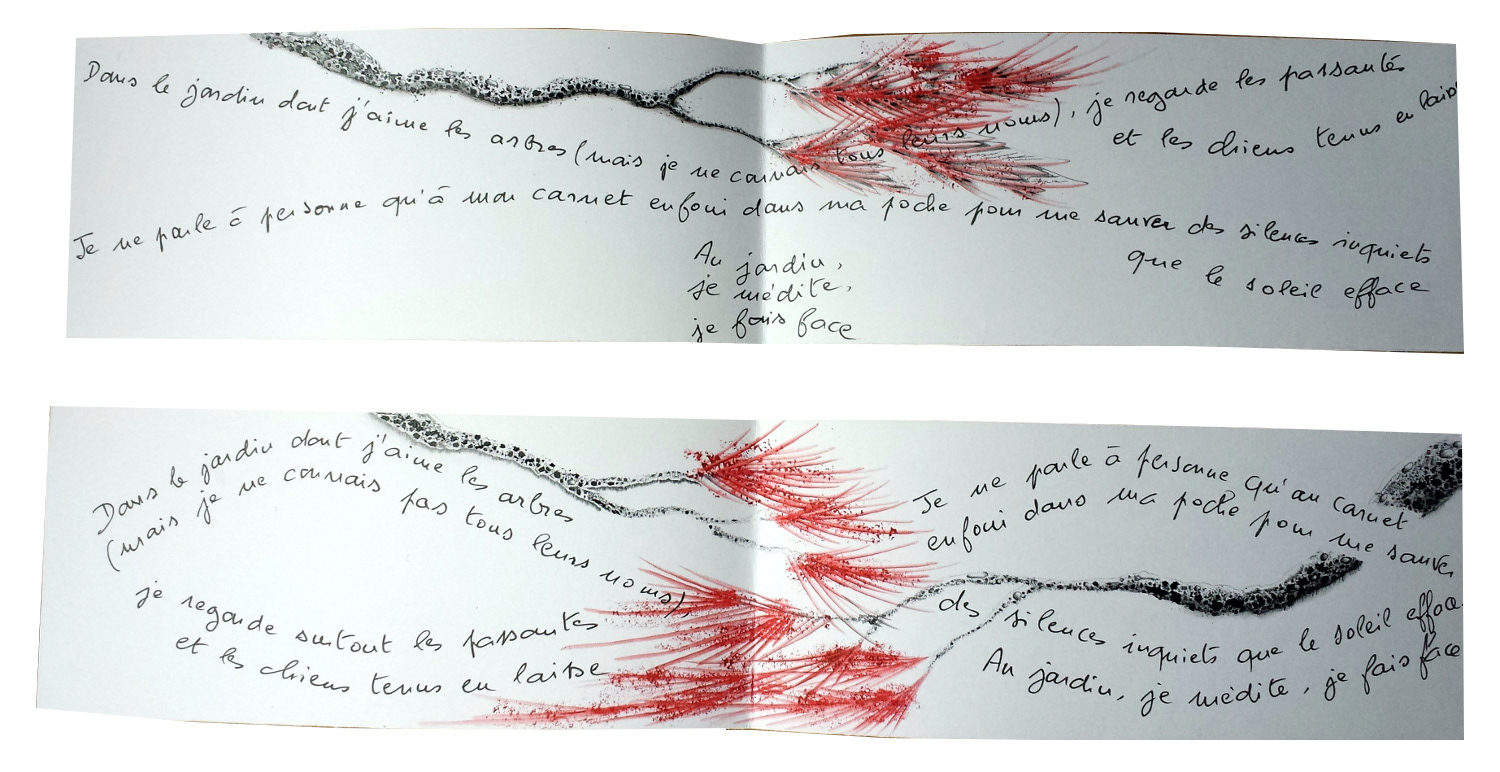 Dans le jardin dont j'aime les arbres (mais je ne connais tous leurs noms), je regarde les passantes
et les chiens tenus en laiss
Je ne parle à personne qu'à mon carnet enfoui dans ma poche pour me sauver des silences inquiets
que le soleil efface
Au jardin,
je médite,
je fais face
Dans le jardin dont j'aime les arbres
(mais je ne connais pas tous leurs noms),
je regarde surtout les passantes
et les chiens tenus en laisse
Je ne parle à personne qu'au carnet
enfoui dans ma poche pour me sauver
des silences inquiets que le soleil efface.
Au jardin, je médite, je fais face